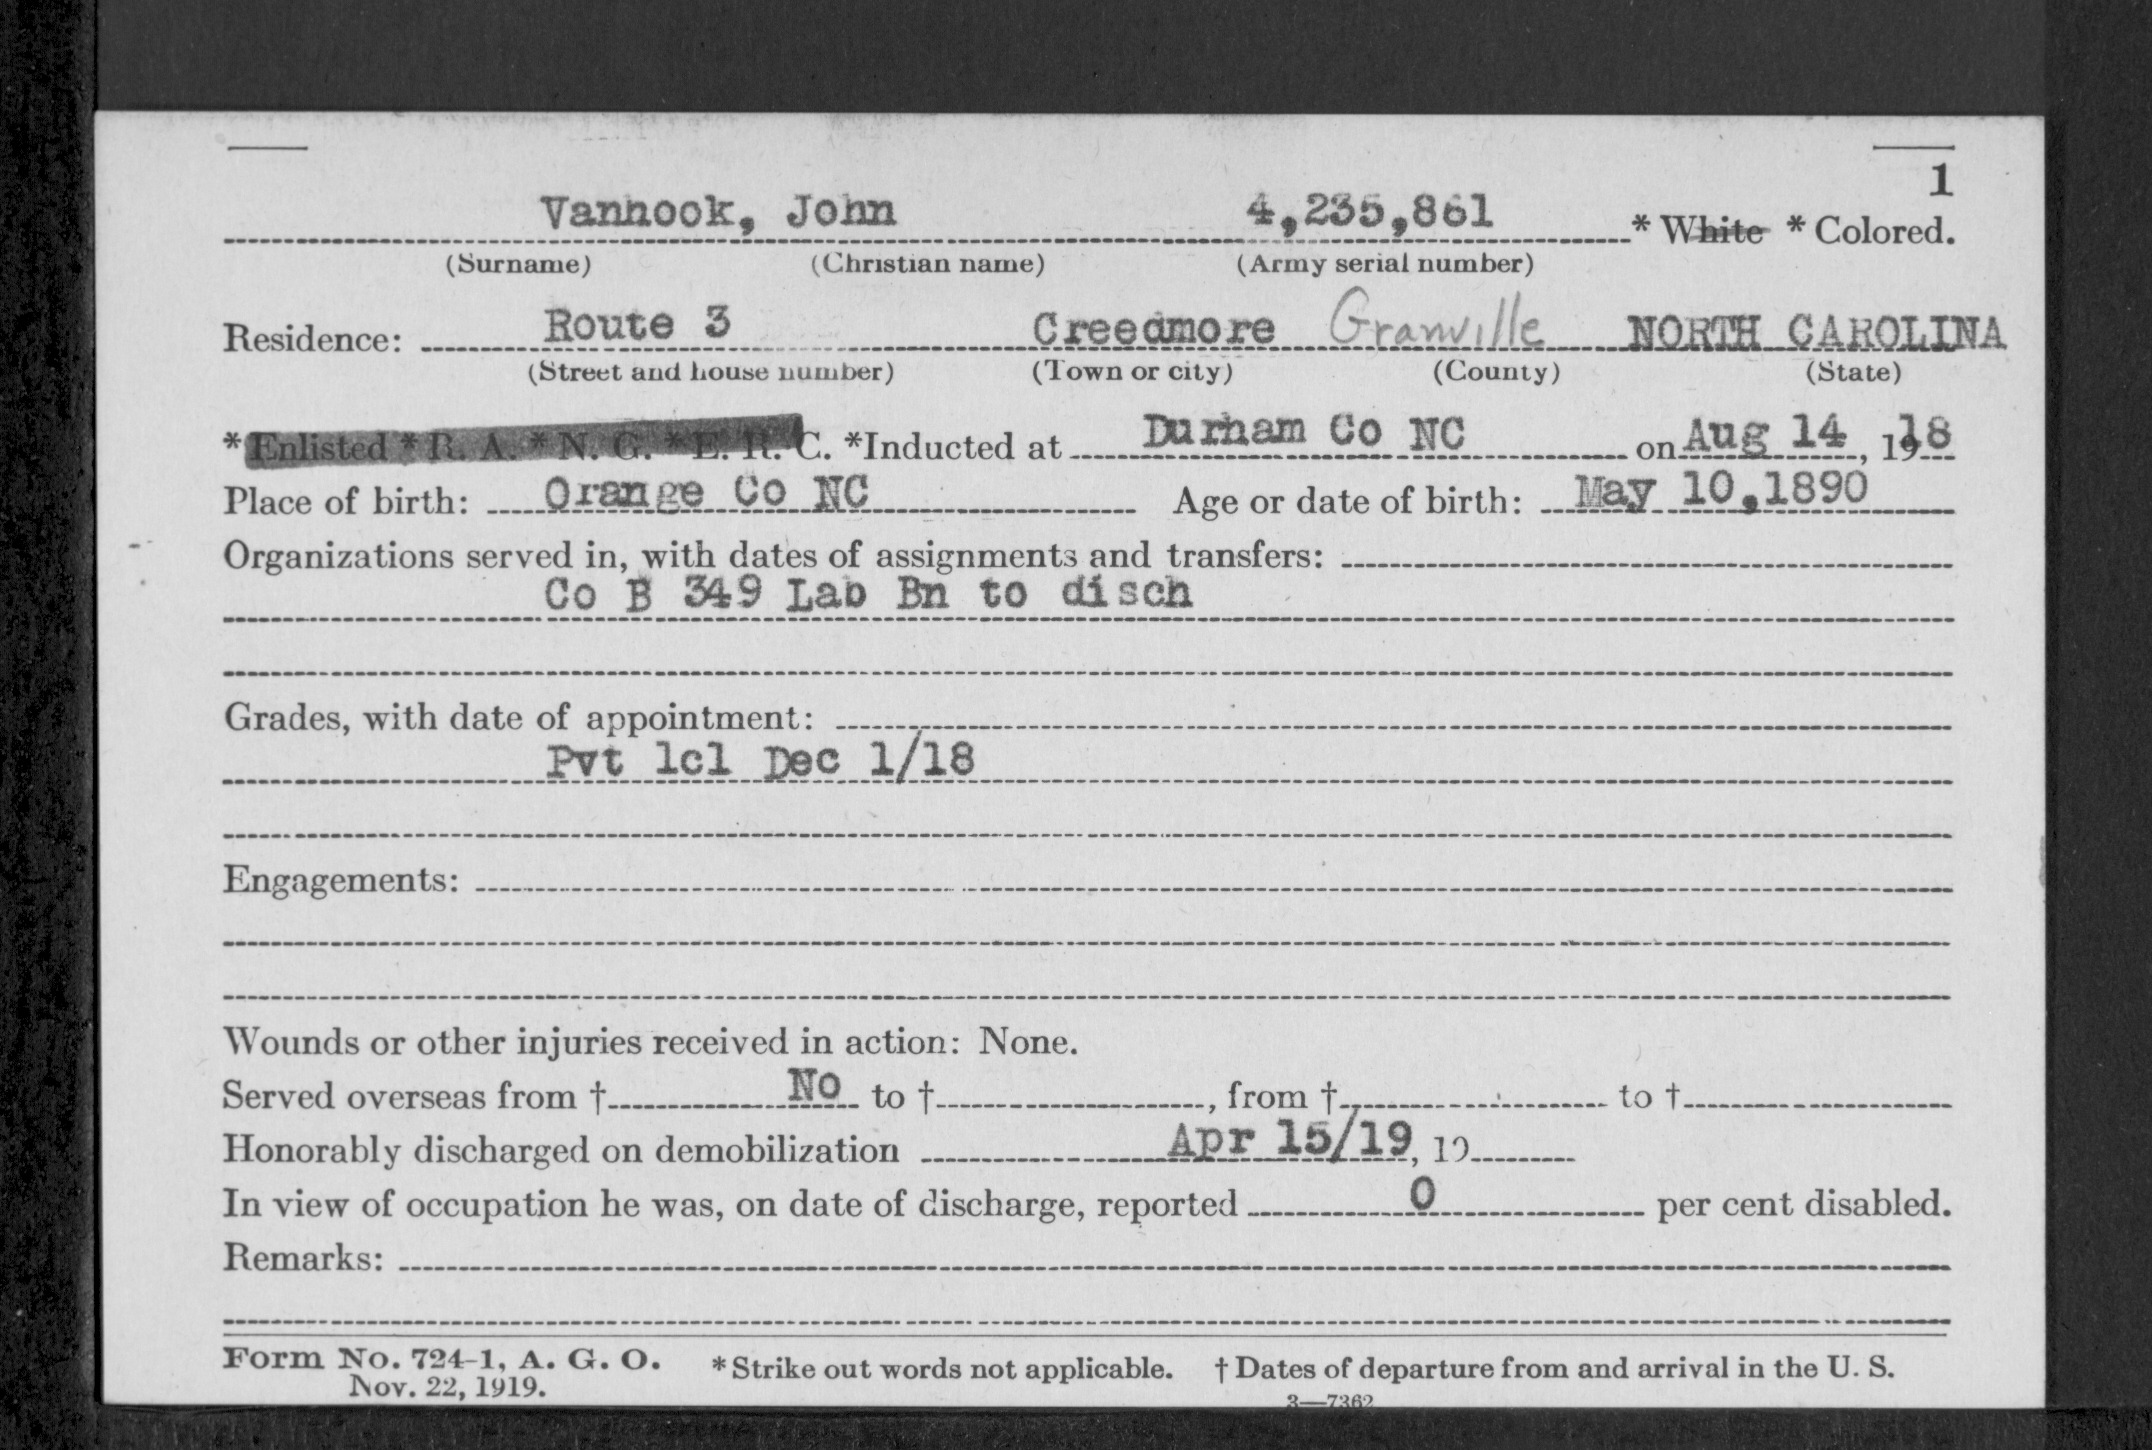 1
Vanhook, John 4,235,861 * White * Colored.
(Surname) (Christian name) (Army serial number)
Residence: Route 3 Creedmore Granville NORTH CAROLINA
(Street and house number) (Town or city) (County) (State)
* Enlisted * R. A. * N. G. * E. R. C. *Inducted at Durham Co NC on Aug 14, 1918
Place of birth: Orange Co NC Age or date of birth: May 10,1890
Organizations served in, with dates of assignments and transfers:
Co B 349 Lab Bn to disch
Grades, with date of appointment:
Pvt 1cl Dec 1/18
Engagements:
Wounds or other injuries received in action: None.
Served overseas from † No to †, from † to †
Honorably discharged on demobilization Apr 15/19, 19
In view of occupation he was, on date of discharge, reported 0 per cent disabled.
Remarks:
Form No. 724-1, A. G. O. * Strike out words not applicable. † Dates of departure from and arrival in the U. S.
Nov. 22, 1919.
3—7362